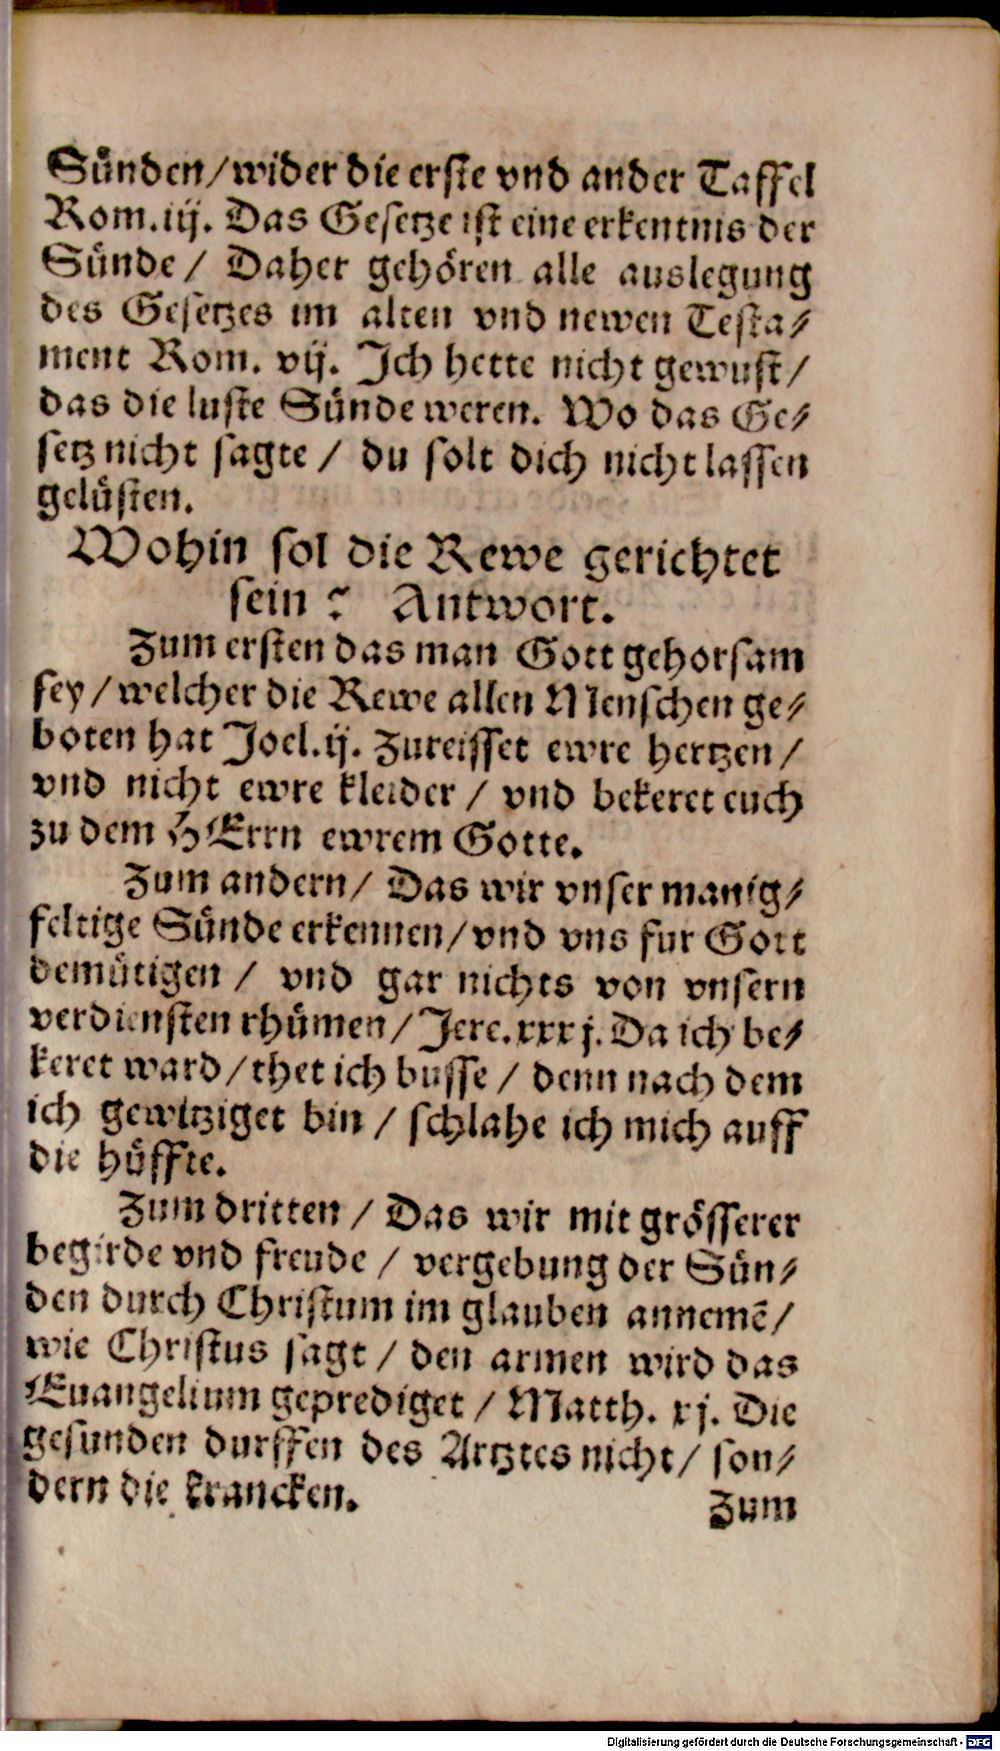 Sünden/wider die erste vnd ander Taffel
Rom.iij. Das Gesetze ist eine erkentnis der
Sünde/ Daher gehören alle auslegung
des Gesetzes im alten vnd newen Testa⸗
ment Rom. vij. Ich hette nicht gewust/
das die luste Sünde weren. Wo das Ge⸗
setz nicht sagte/ du solt dich nicht lassen
gelüsten.
Wohin sol die Rewe gerichtet
sein? Antwort.
Zum ersten das man Gott gehorsam
sey/welcher die Rewe allen Menschen ge⸗
boten hat Joel.ij. Zureisset ewre hertzen/
vnd nicht ewre kleider/ vnd bekeret euch
zu dem HErrn ewrem Gotte.
Zum andern/ Das wir vnser manig⸗
feltige Sünde erkennen/vnd vns fur Gott
demütigen/ vnd gar nichts von vnsern
verdiensten rhümen/Jere.xxxj.Da ich be⸗
keret ward/thet ich busse/ denn nach dem
ich gewitziget bin/ schlahe ich mich auff
die hüffte.
Zum dritten/ Das wir mit grösserer
begirde vnd freude/ vergebung der Sün⸗
den durch Christum im glauben annemē/
wie Christus sagt/ den armen wird das
Euangelium geprediget/ Matth. xj. Die
gesunden durffen des Artztes nicht/ son⸗
dern die krancken.
Zum
Digitalisierung gefördert durch die Deutsche Forschungsgemeinschaft - DFG